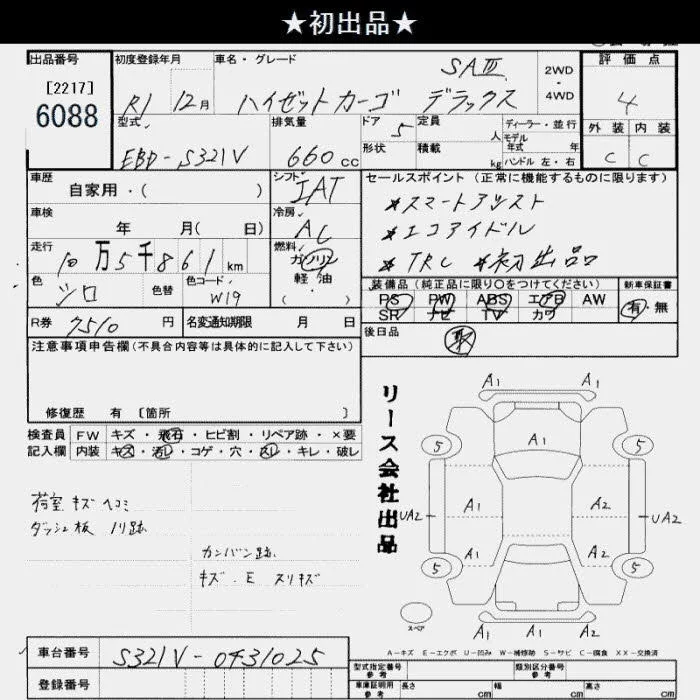 ★初出品★
出品番号 初度登録年月 車名・グレード SAⅢ 2WD・4WD 評価点
[2217]
6088 R1 12月 ハイゼットカーゴ デラックス 4
型式 排気量 ドア 5 定員 人 ディーラー・並行 外装 内装
モデル年式 年
EBD-S321V 660cc 形状 積載 kg ハンドル 左・右 C C
車歴 シフト IAT セールスポイント (正常に機能するものに限ります)
自家用・( ) *スマートアシスト
車検 冷房 *エコアイドル
年 月( 日) AC *TRC *初出品
走行 燃料
10万5千861km ガソリン 軽油 ( ・ )
色 色替 色コード 装備品 (純正品に限り〇をつけてください) 新車保証書
シロ W19 PS PW ABS エアB AW 有・無
SR ナビ TV カワ
R券 7510円 名変通知期限 月 日 後日品 取
注意事項申告欄 (不具合内容等は具体的に記入して下さい)
修復歴 有 [箇所 ]
検査員 FW キズ・飛石・ヒビ割・リペア跡・×要
記入欄 内装 キズ・汚レ・コゲ・穴・スレ・キレ・破レ
荷室 キズ ヘコミ
ダッシュ板 ノリ跡
カンバン跡
キズ.E スリキズ
リース会社出品
A1 A1
5 A1 5
A1 A2
UA2 UA2
A1 A2
5 5
A1 A1 A1
スペア
A-キズ E-エクボ U-凹み W-補修跡 S-サビ C-腐食 XX-交換済
車台番号 S321V-0431025
登録番号
型式指定番号 参考 類別区分番号 参考
車庫証明用 参考 長さ cm 幅 cm 高さ cm